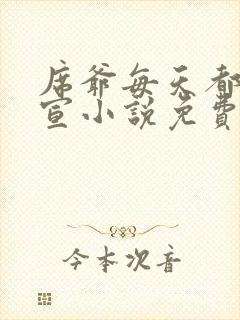 席爷每天都
宣小說免費
今本次音